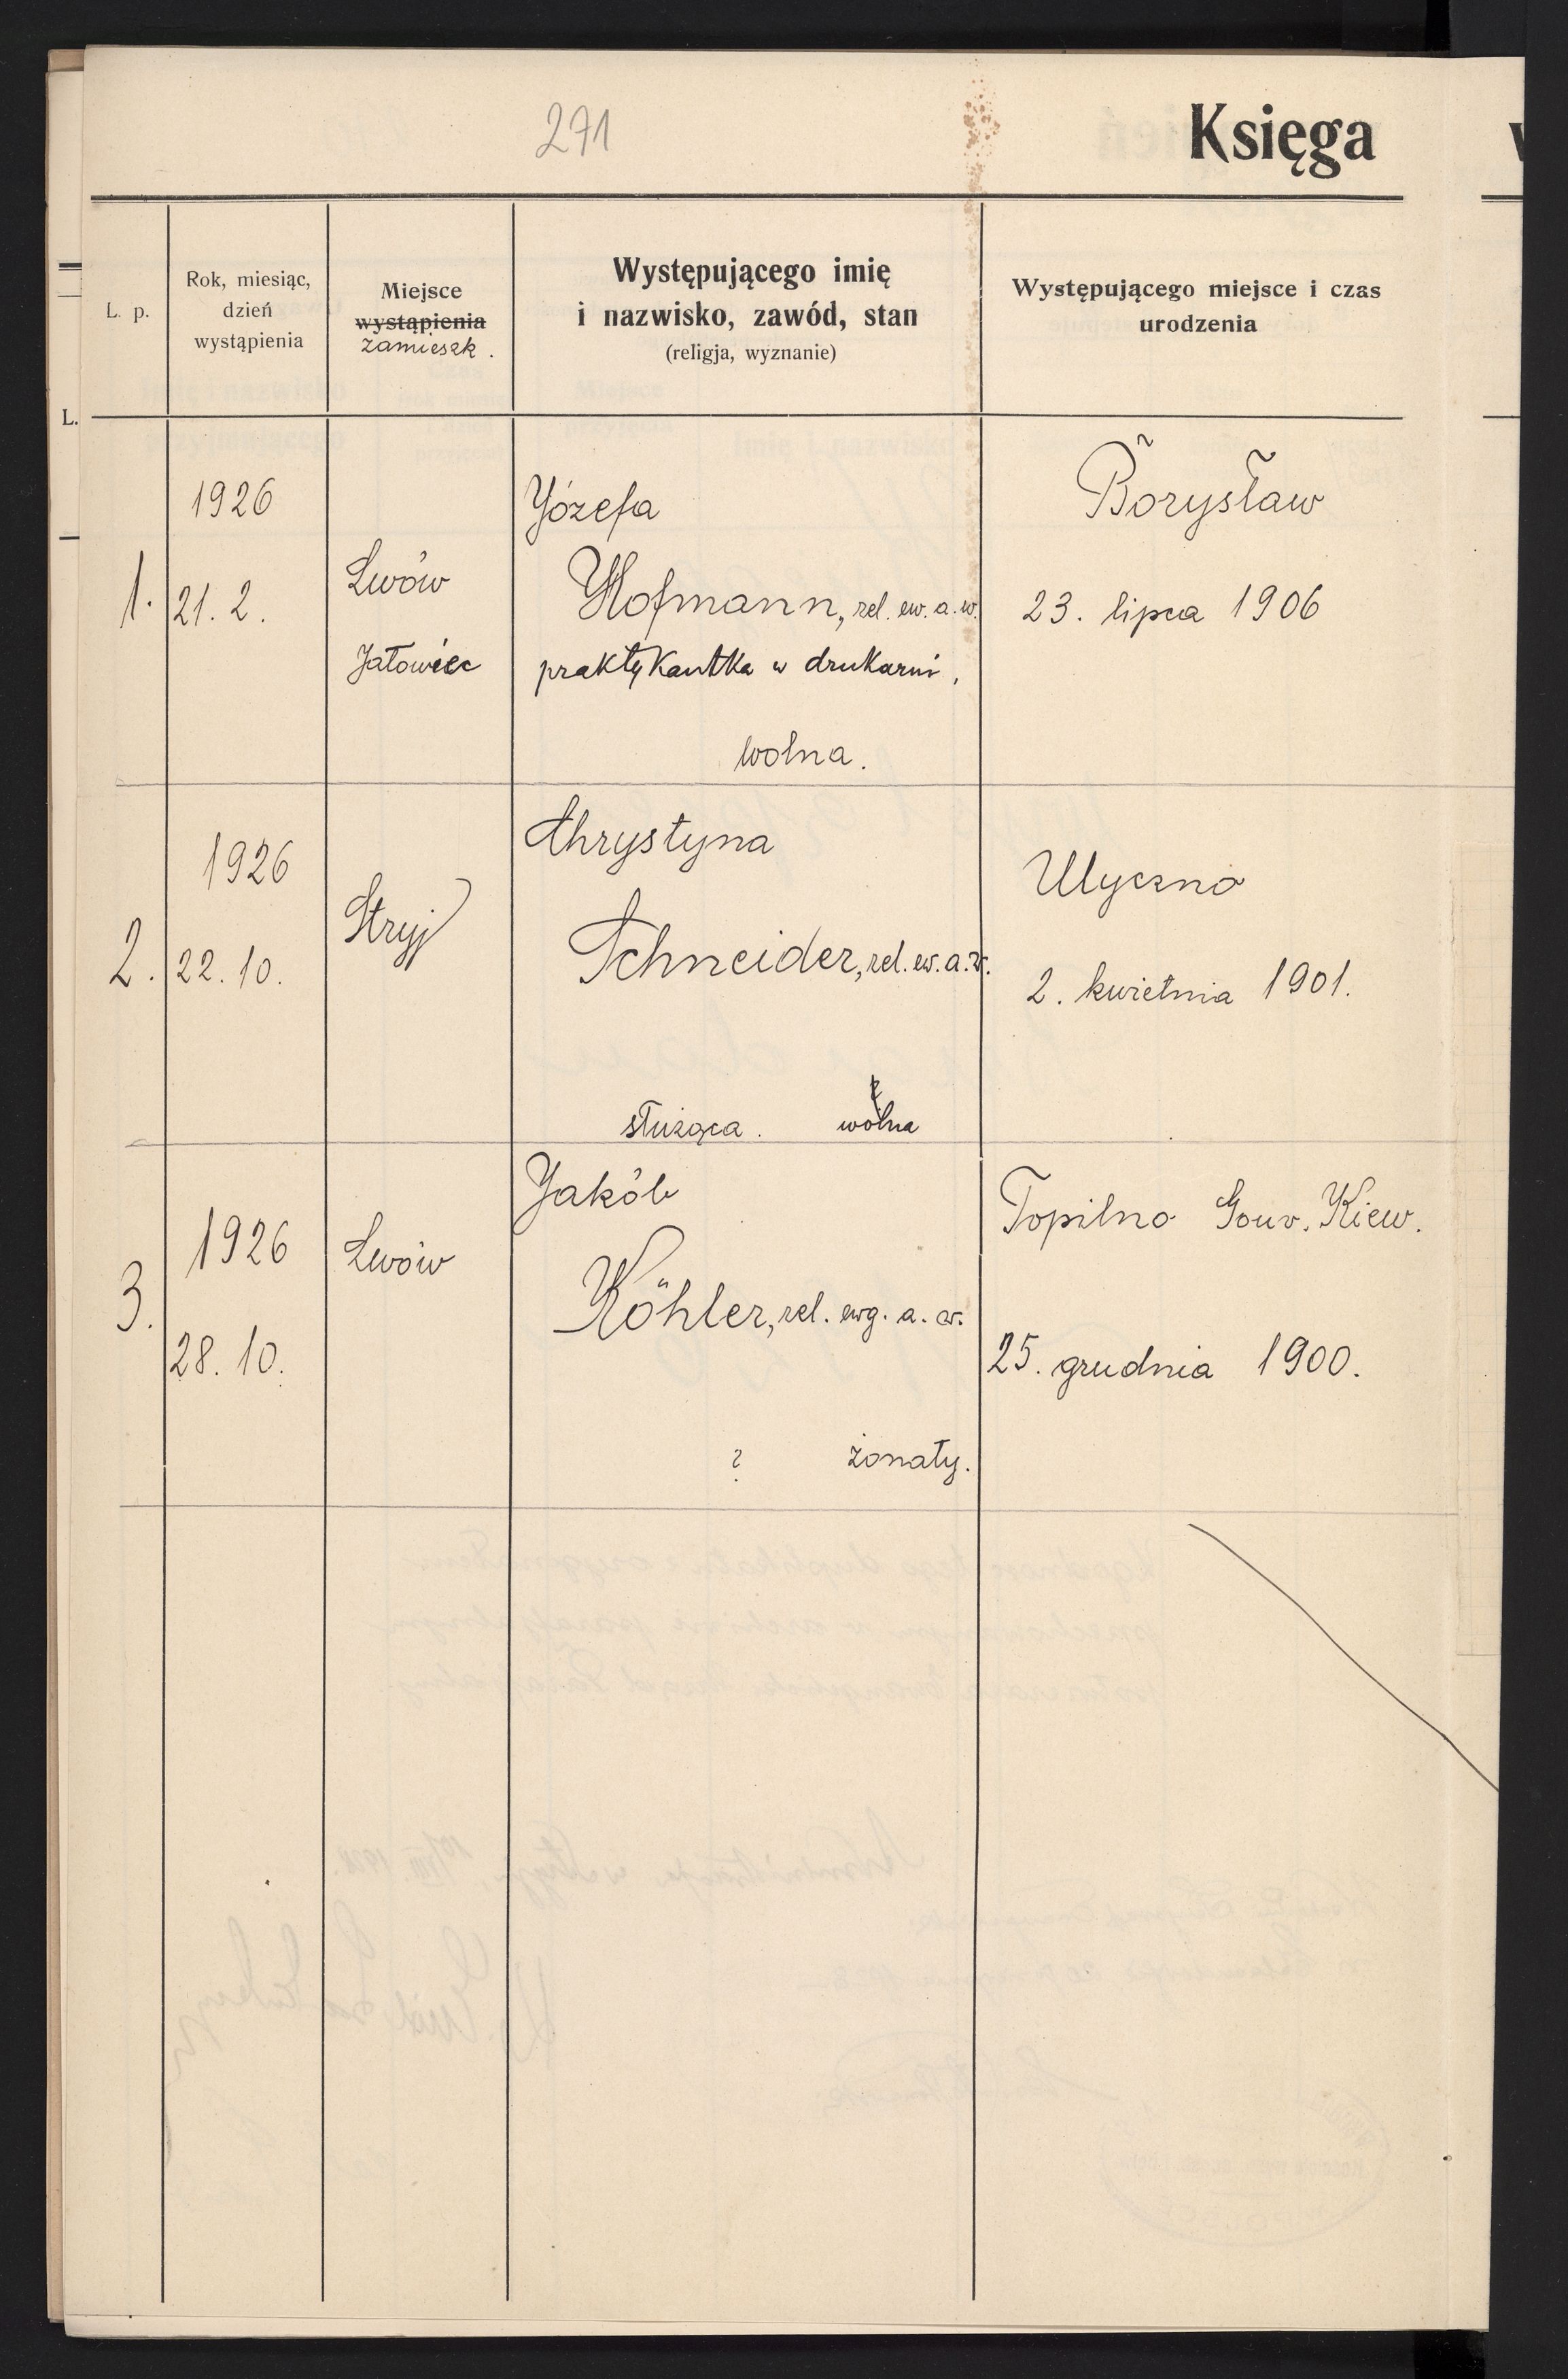 271
Księga
L. p.
Rok, miesiąc,
dzień
wystąpienia
Miejsce
wystąpienia
zamieszk.
Występującego imię
i nazwisko, zawód, stan
(religja, wyznanie)
Występującego miejsce i czas
urodzenia
L.
1.
1926
21. 2.
Lwów
Jałowiec
Józefa
Hofmann, rel. ew. a. w.
praktykantka w drukarni,
wolna.
Borysław
23. lipca 1906
2.
1926
22. 10.
Stryj
Chrystyna
Schneider, rel. ew. a. w.
służąca. wolna
Ulyczno
2. kwietnia 1901.
3.
1926
28. 10.
Lwów
Jakób
Köhler, rel. ewg. a. w.
? żonaty.
Topilno Gouv. Kiew.
25. grudnia 1900.